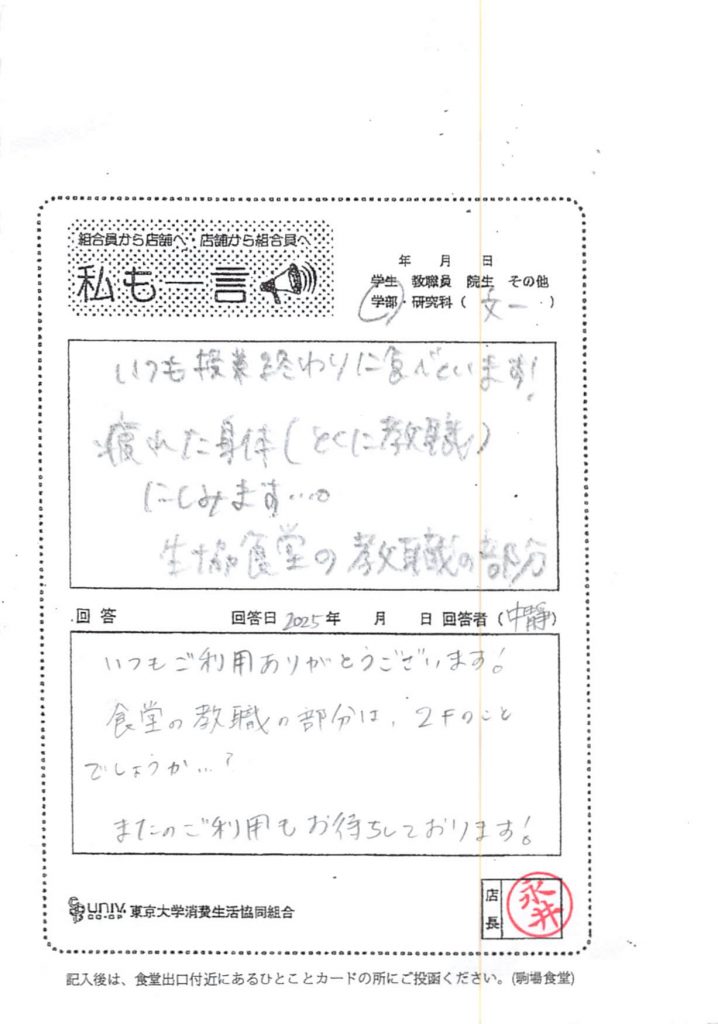 組合員から店舗へ・店舗から組合員へ
私も一言
年 月 日
学生 教職員 院生 その他
学部・研究科( 文一 )
いつも授業終わりに食べています!
疲れた身体(とくに教職)
にしみます…。
生協食堂の教職の部分
回答 回答日 2025年 月 日 回答者(中静)
いつもご利用ありがとうございます!
食堂の教職の部分は、2Fのこと
でしょうか…?
またのご利用もお待ちしております!
UNIV. CO-OP 東京大学消費生活協同組合
店長 永井
記入後は、食堂出口付近にあるひとことカードの所にご投函ください。(駒場食堂)